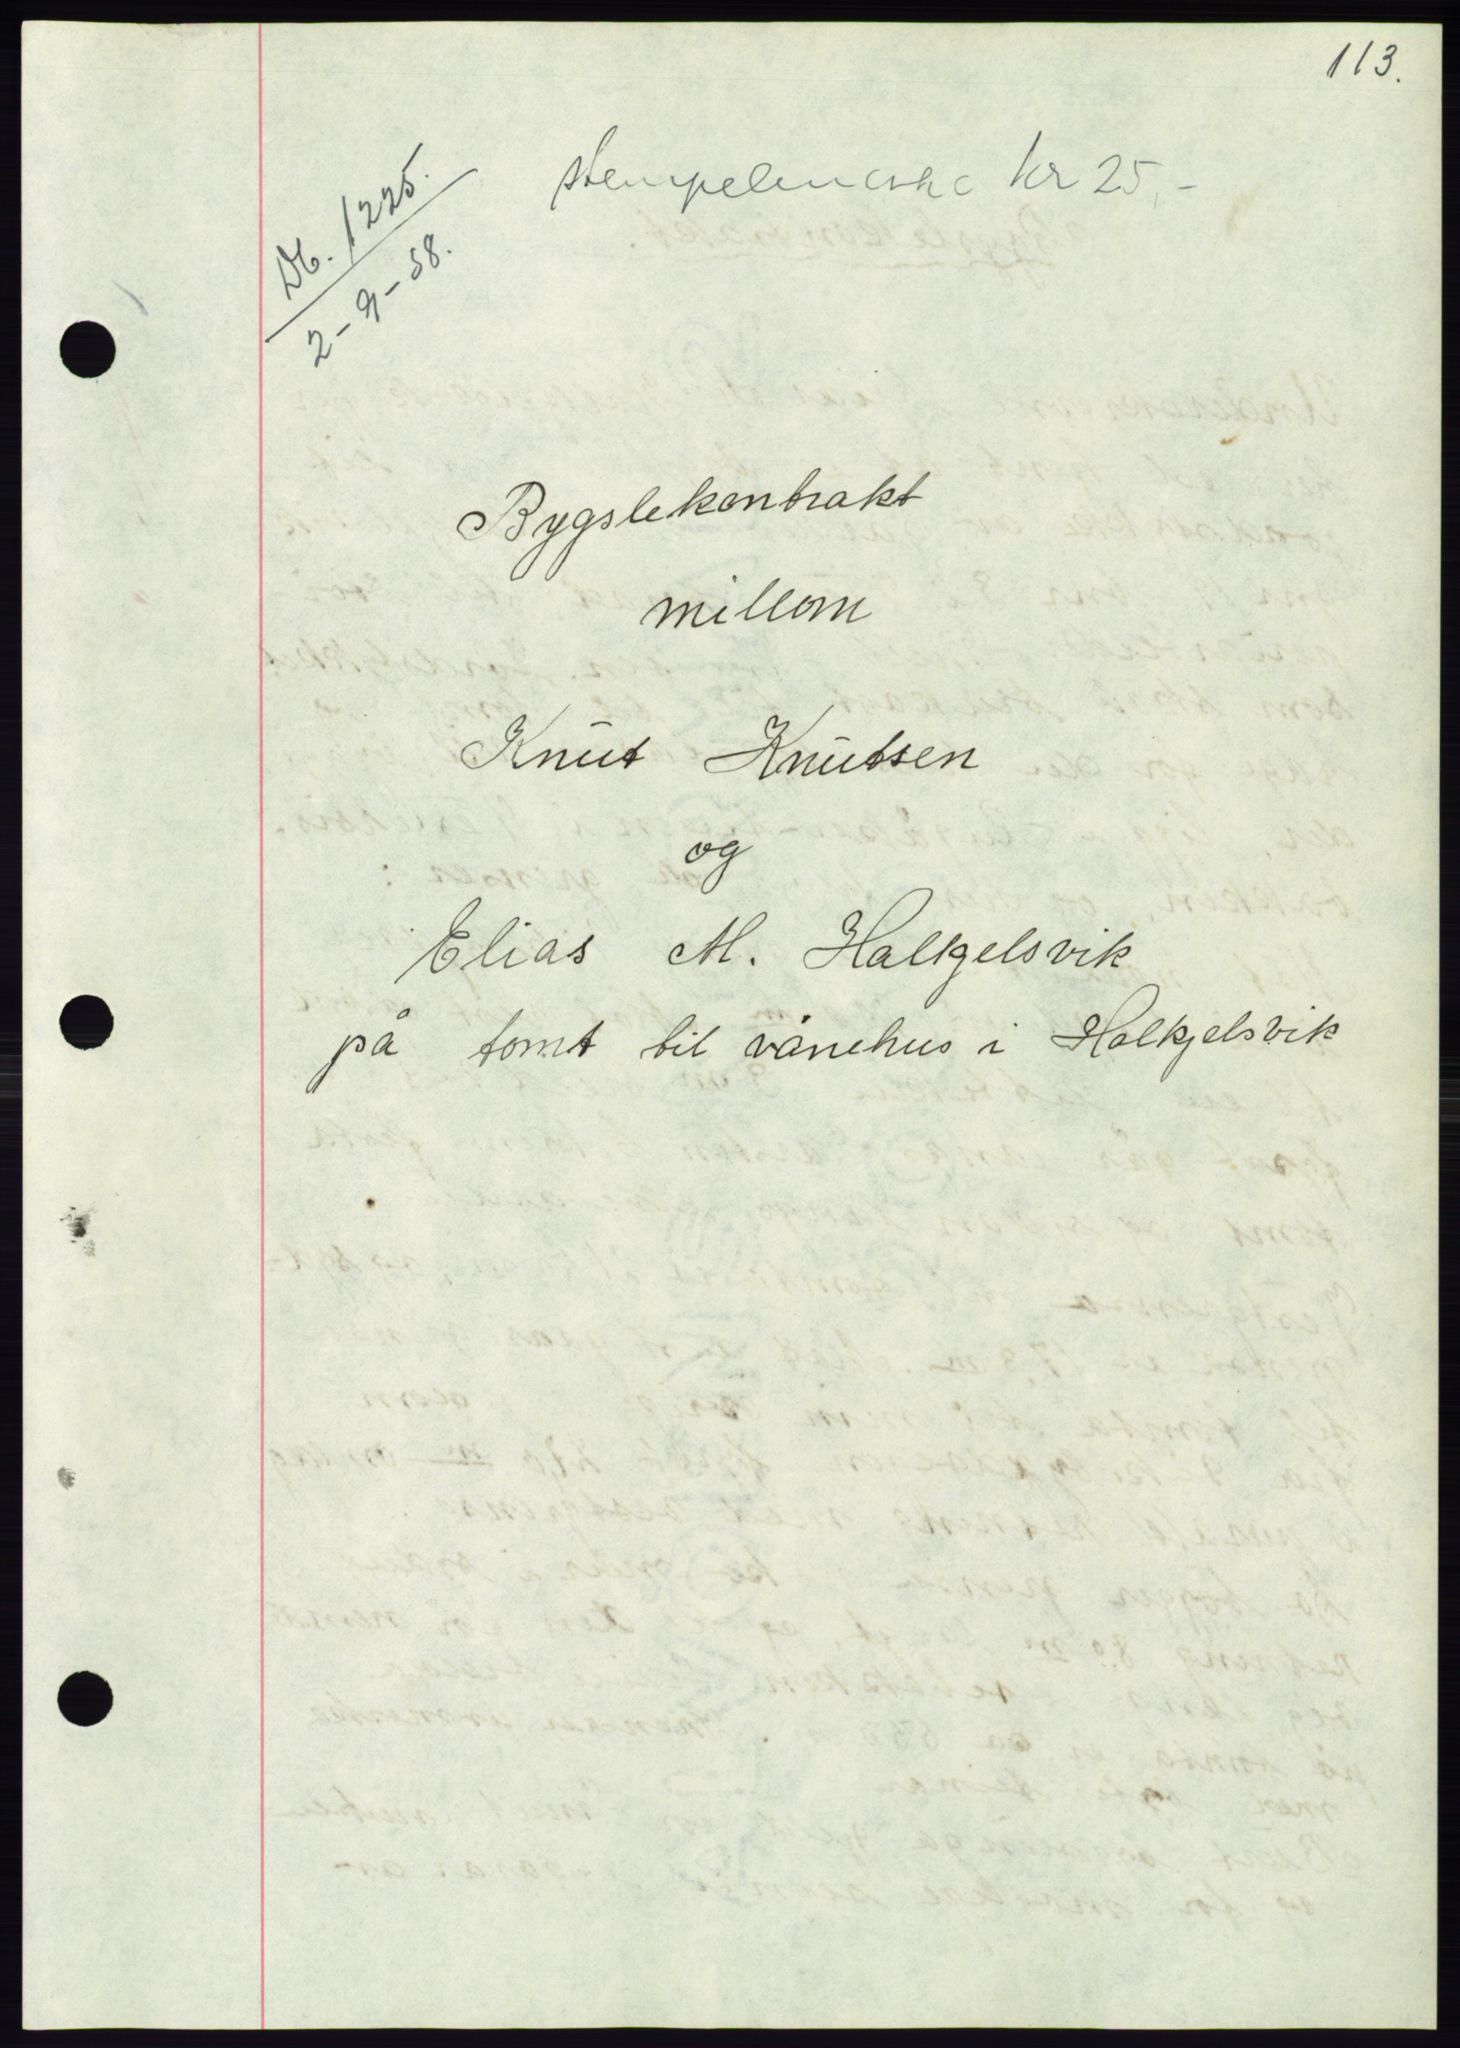 113.
stempelmerke kr 25,-
Db. 1225.
2-9-58.
Bygslekontrakt
millom
Knut Knutsen
og
Elias M. Halkjelsvik
på tomt til vånehus i Halkjelsvik